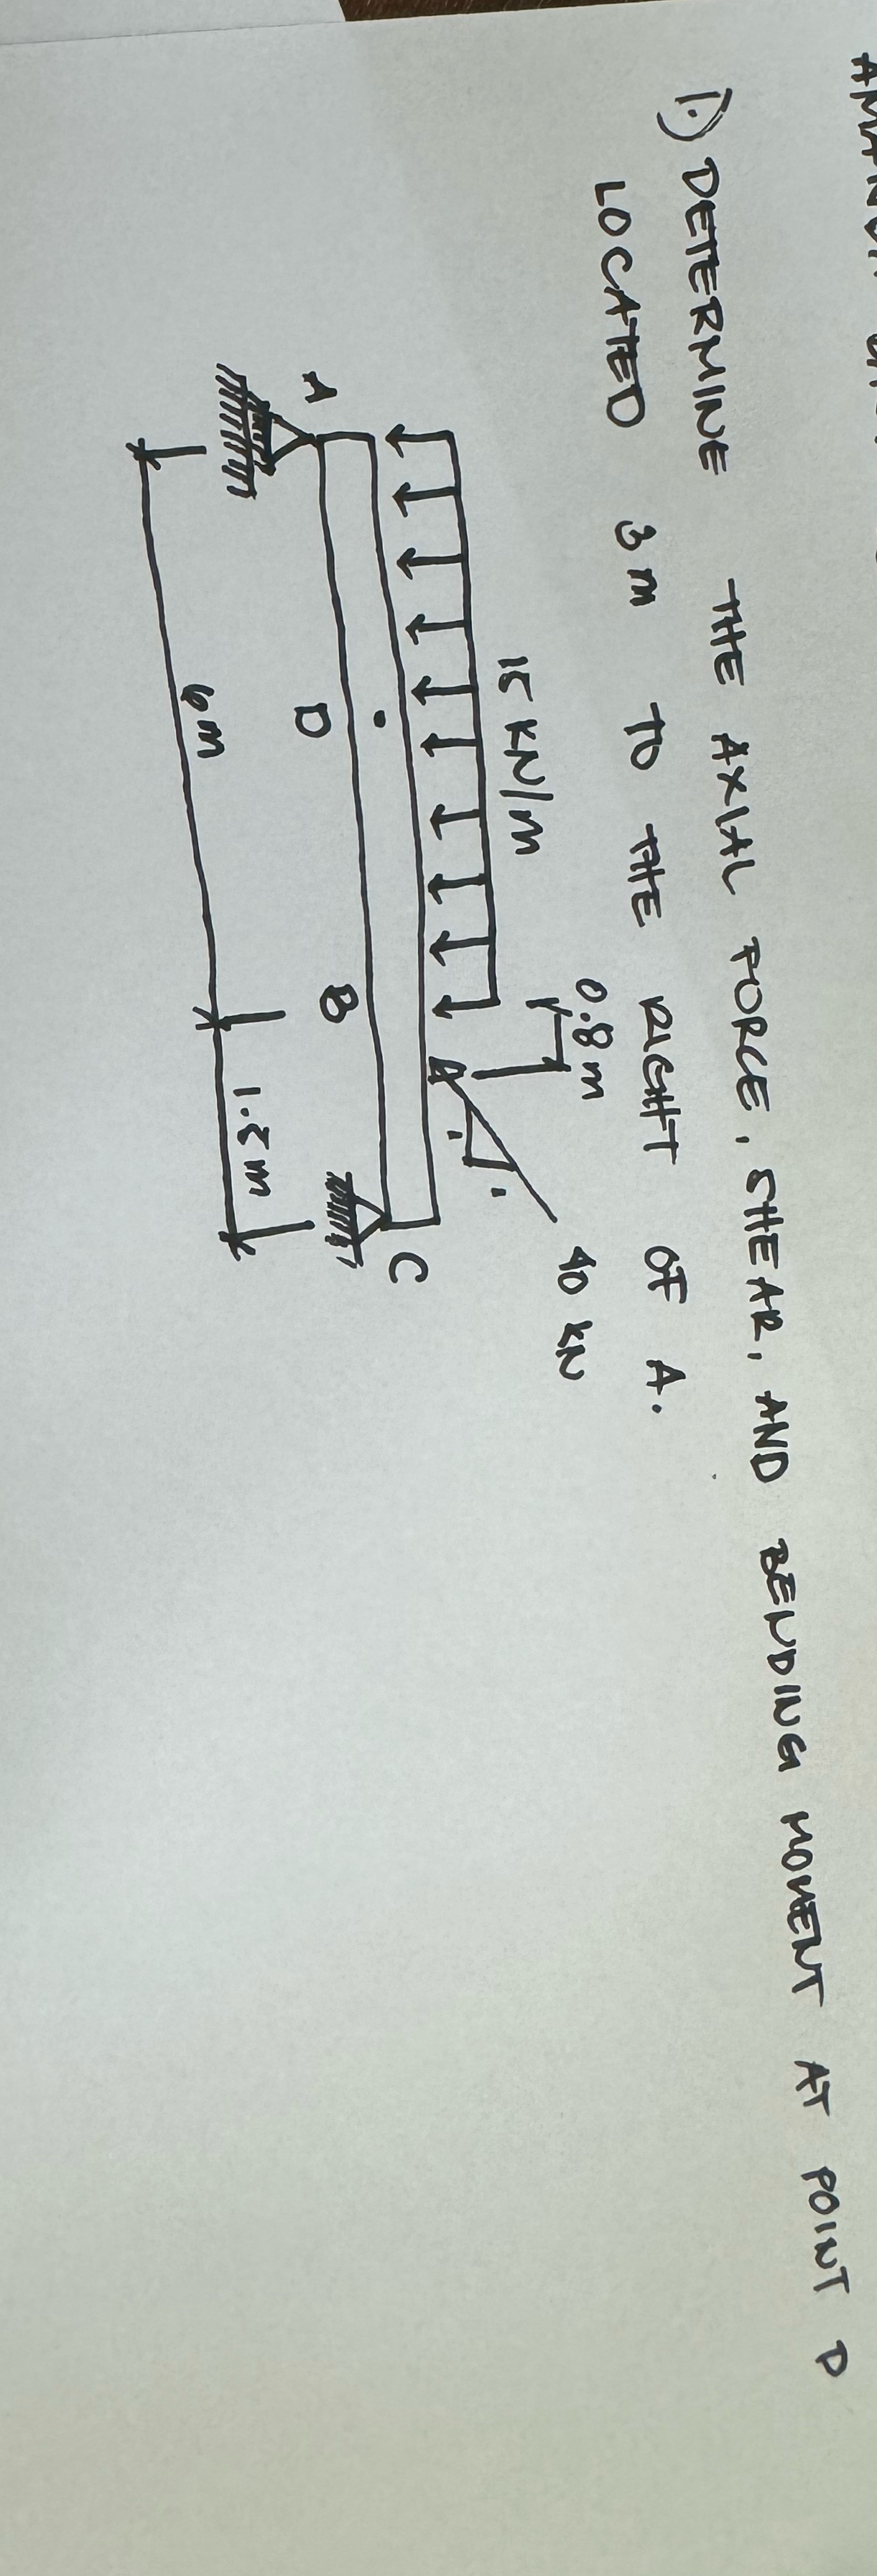 1.) DETERMINE THE AXIAL FORCE, SHEAR, AND BENDING MOMENT AT POINT D
LOCATED 3 m TO THE RIGHT OF A.
0.8 m
40 KN
15 KN/m
1
1
A
D
B
C
6m
1.5m